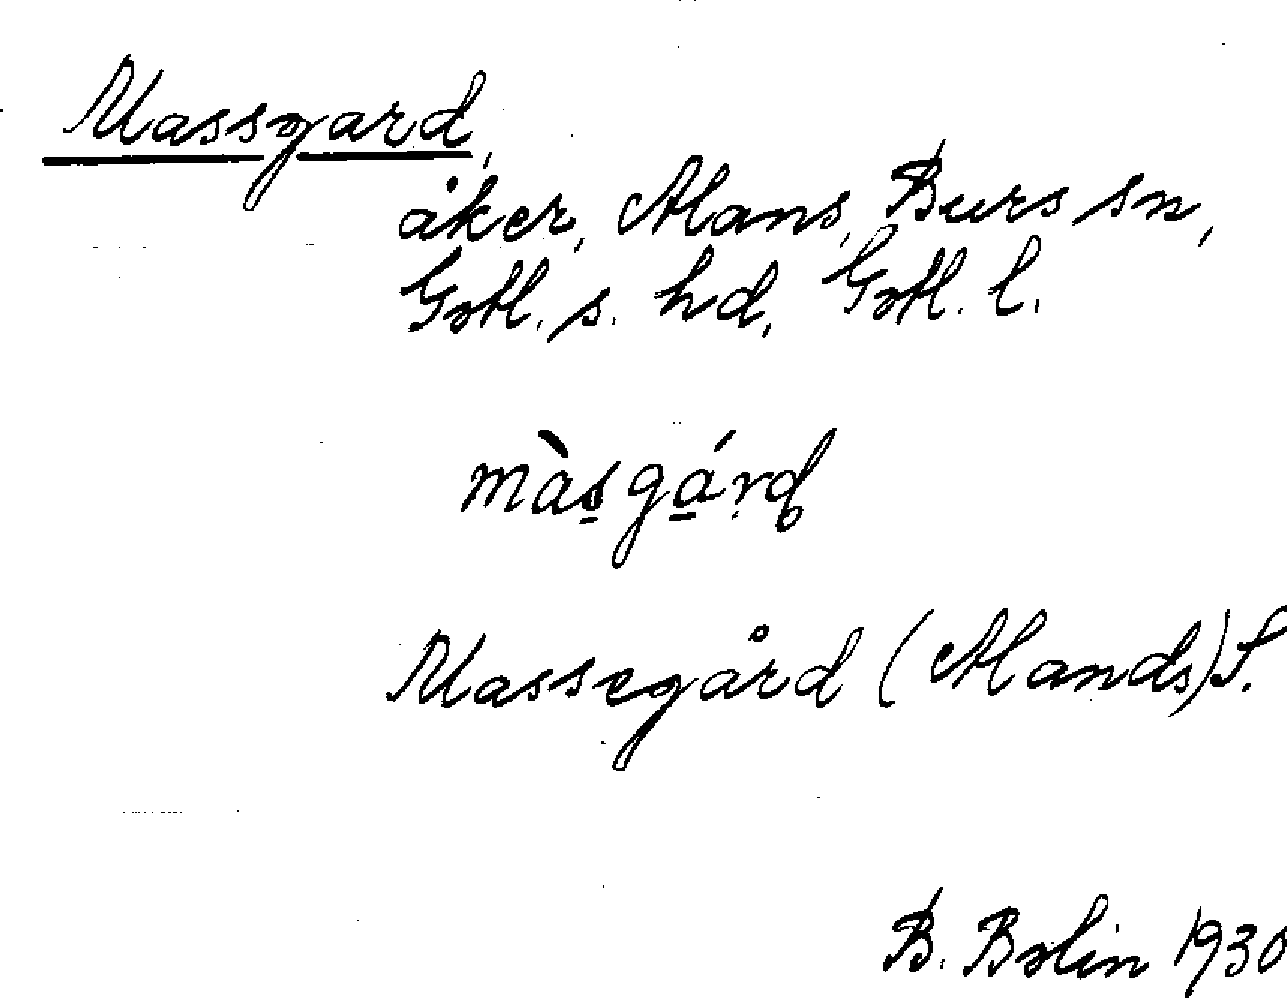 Massgard,
åker, Mans, Burs sn,
Gotl. s. hd, Gotl. l.
màs̠gá̠rd
Massegård (Mands) S.
B. Bolin 1930